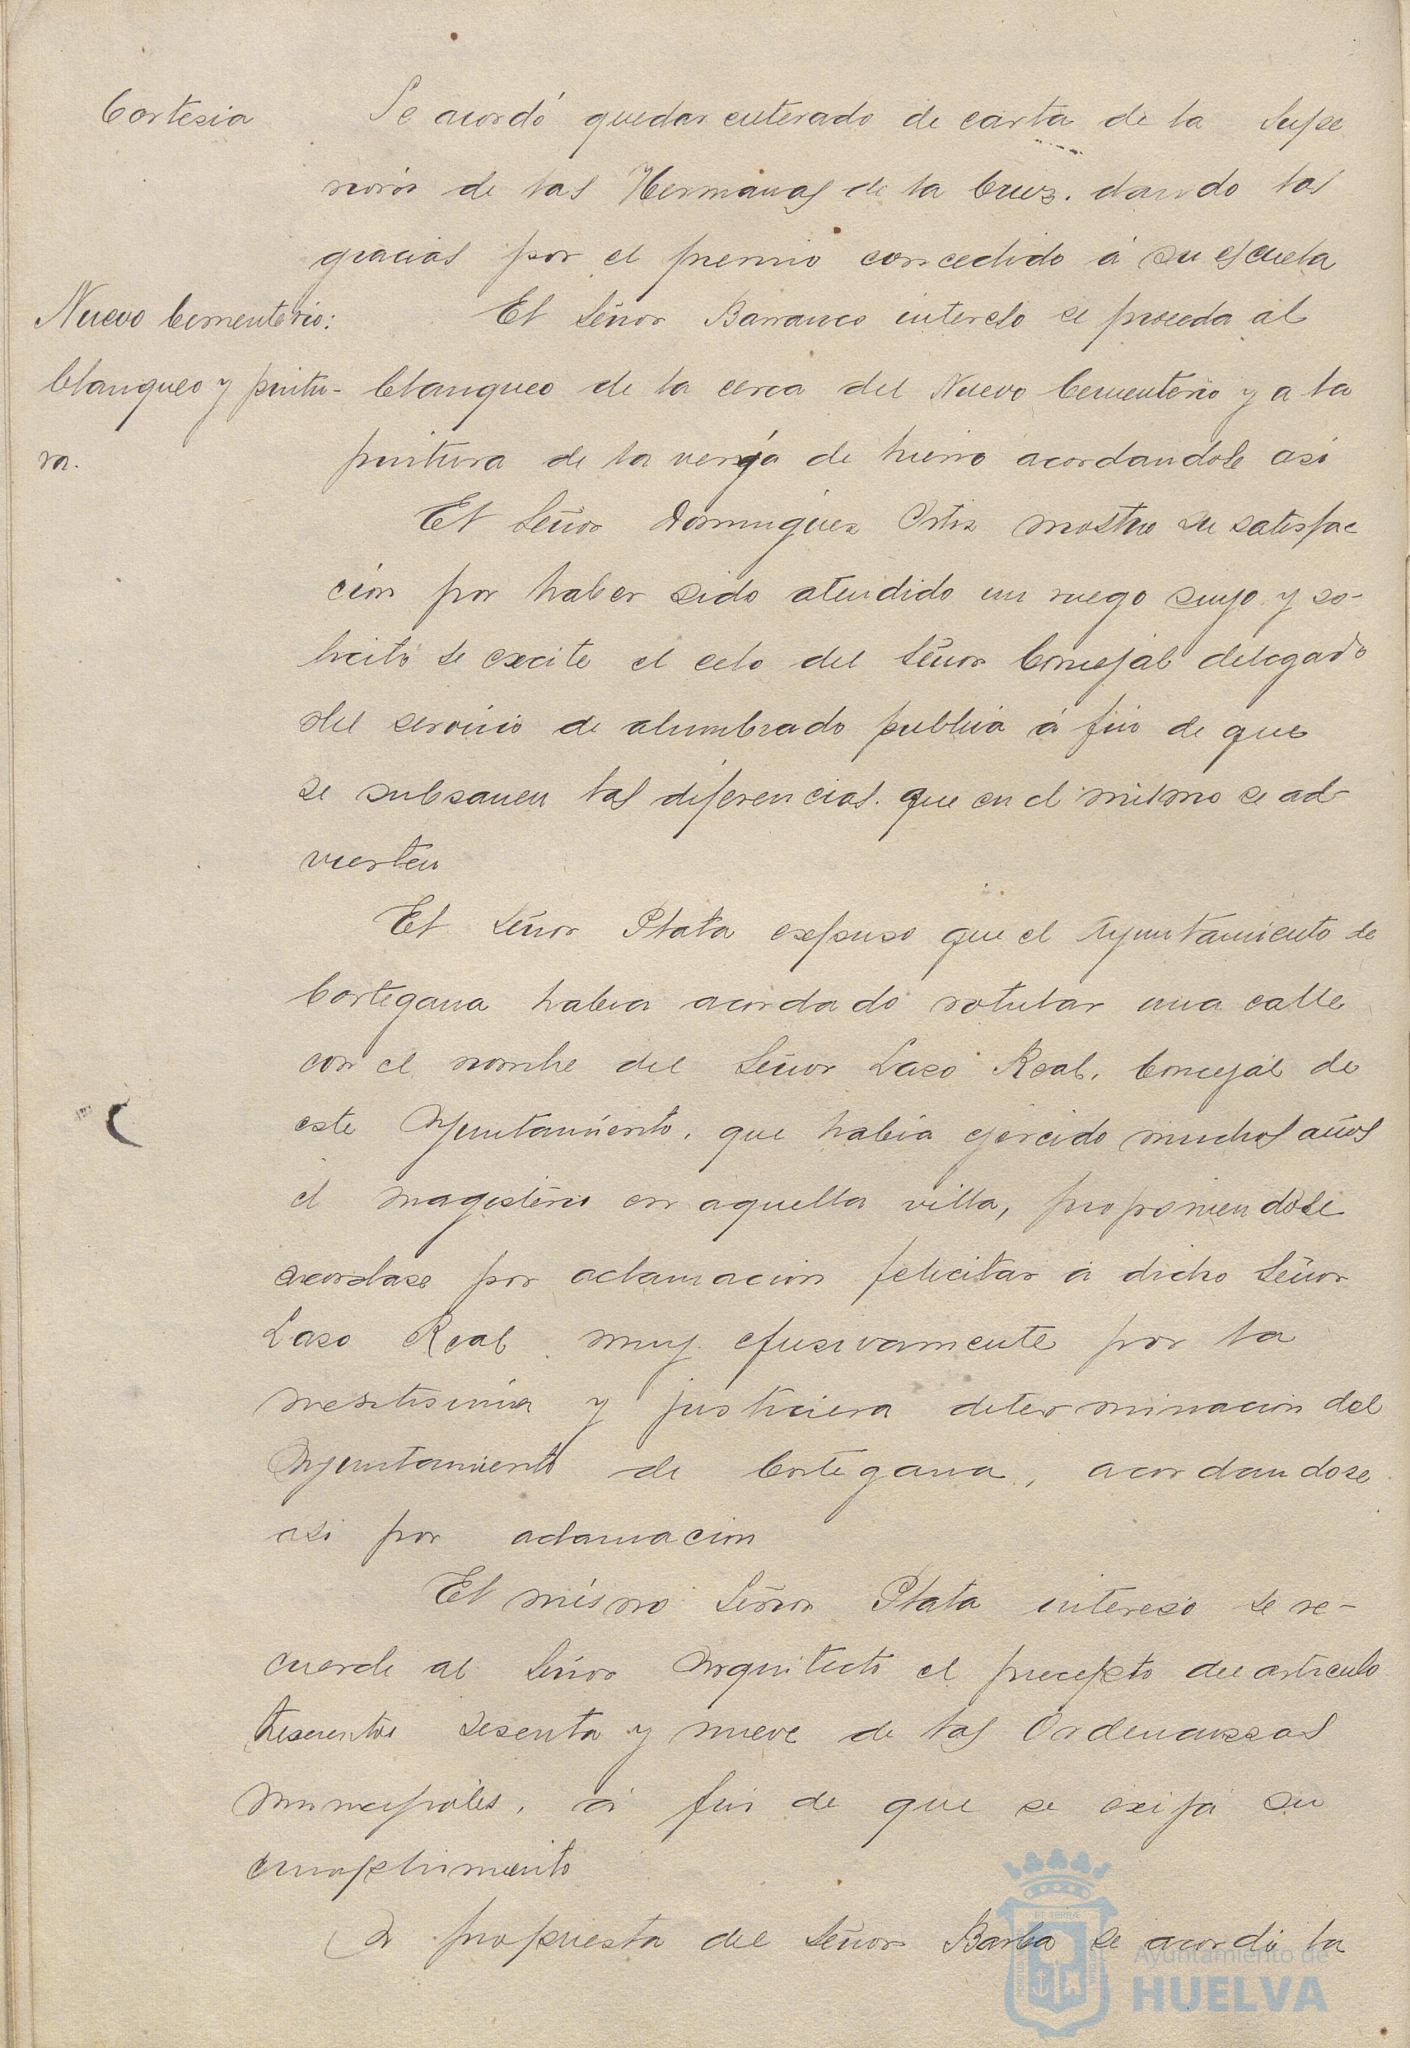 Cortesia
Se acordó quedar enterado de carta de la Supe
riora de las Hermanas de la Cruz. dando las
gracias por el premio concedido á su escuela
Nuevo Cementerio:
blanqueo y pintu-
ra.
El Señor Barranco intereso se proceda al
blanqueo de la cerca del Nuevo Cementerio y a la
pintura de la verja de hierro acordandose asi
El Señor Dominguez Ortiz mostro su satisfac
ción por haber sido atendido un ruego suyo y so-
licitó se excite el celo del Señor Concejal delegado
del servicio de alumbrado publico á fin de que
se subsanen las diferencias que en el mismo se ad
vierten
El Señor Plata expuso que el Ayuntamiento de
Cortegana habia acordado rotular una calle
con el nombre del Señor Laso Real, Concejal de
este Ayuntamiento, que habia ejercido muchos años
el magisterio en aquella villa, proponiendose
acordase por aclamacion felicitar a dicho Señor
Laso Real muy efusivamente por la
y justiciera determinacion del
Ayuntamiento de Cortegana, acordandose
asi por aclamacion
El mismo Señor Plata intereso se re-
cuerde al Señor Arquitecto el precepto del articulo
trescientos sesenta y nueve de las Ordenanzas
municipales, á fin de que se exija su
cumplimiento
A propuesta del Señor Barba se acordó la
Ayuntamiento de
HUELVA